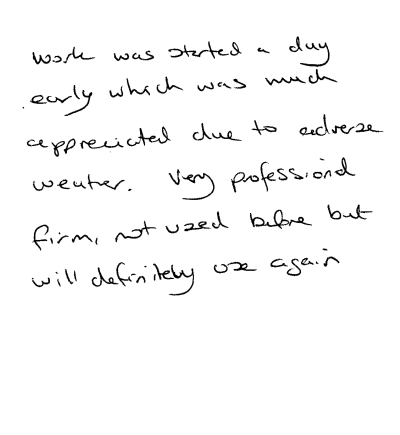 work was started a day
early which was much
appreciated due to adverse
weather. Very professional
firm, not used before but
will definitely use again